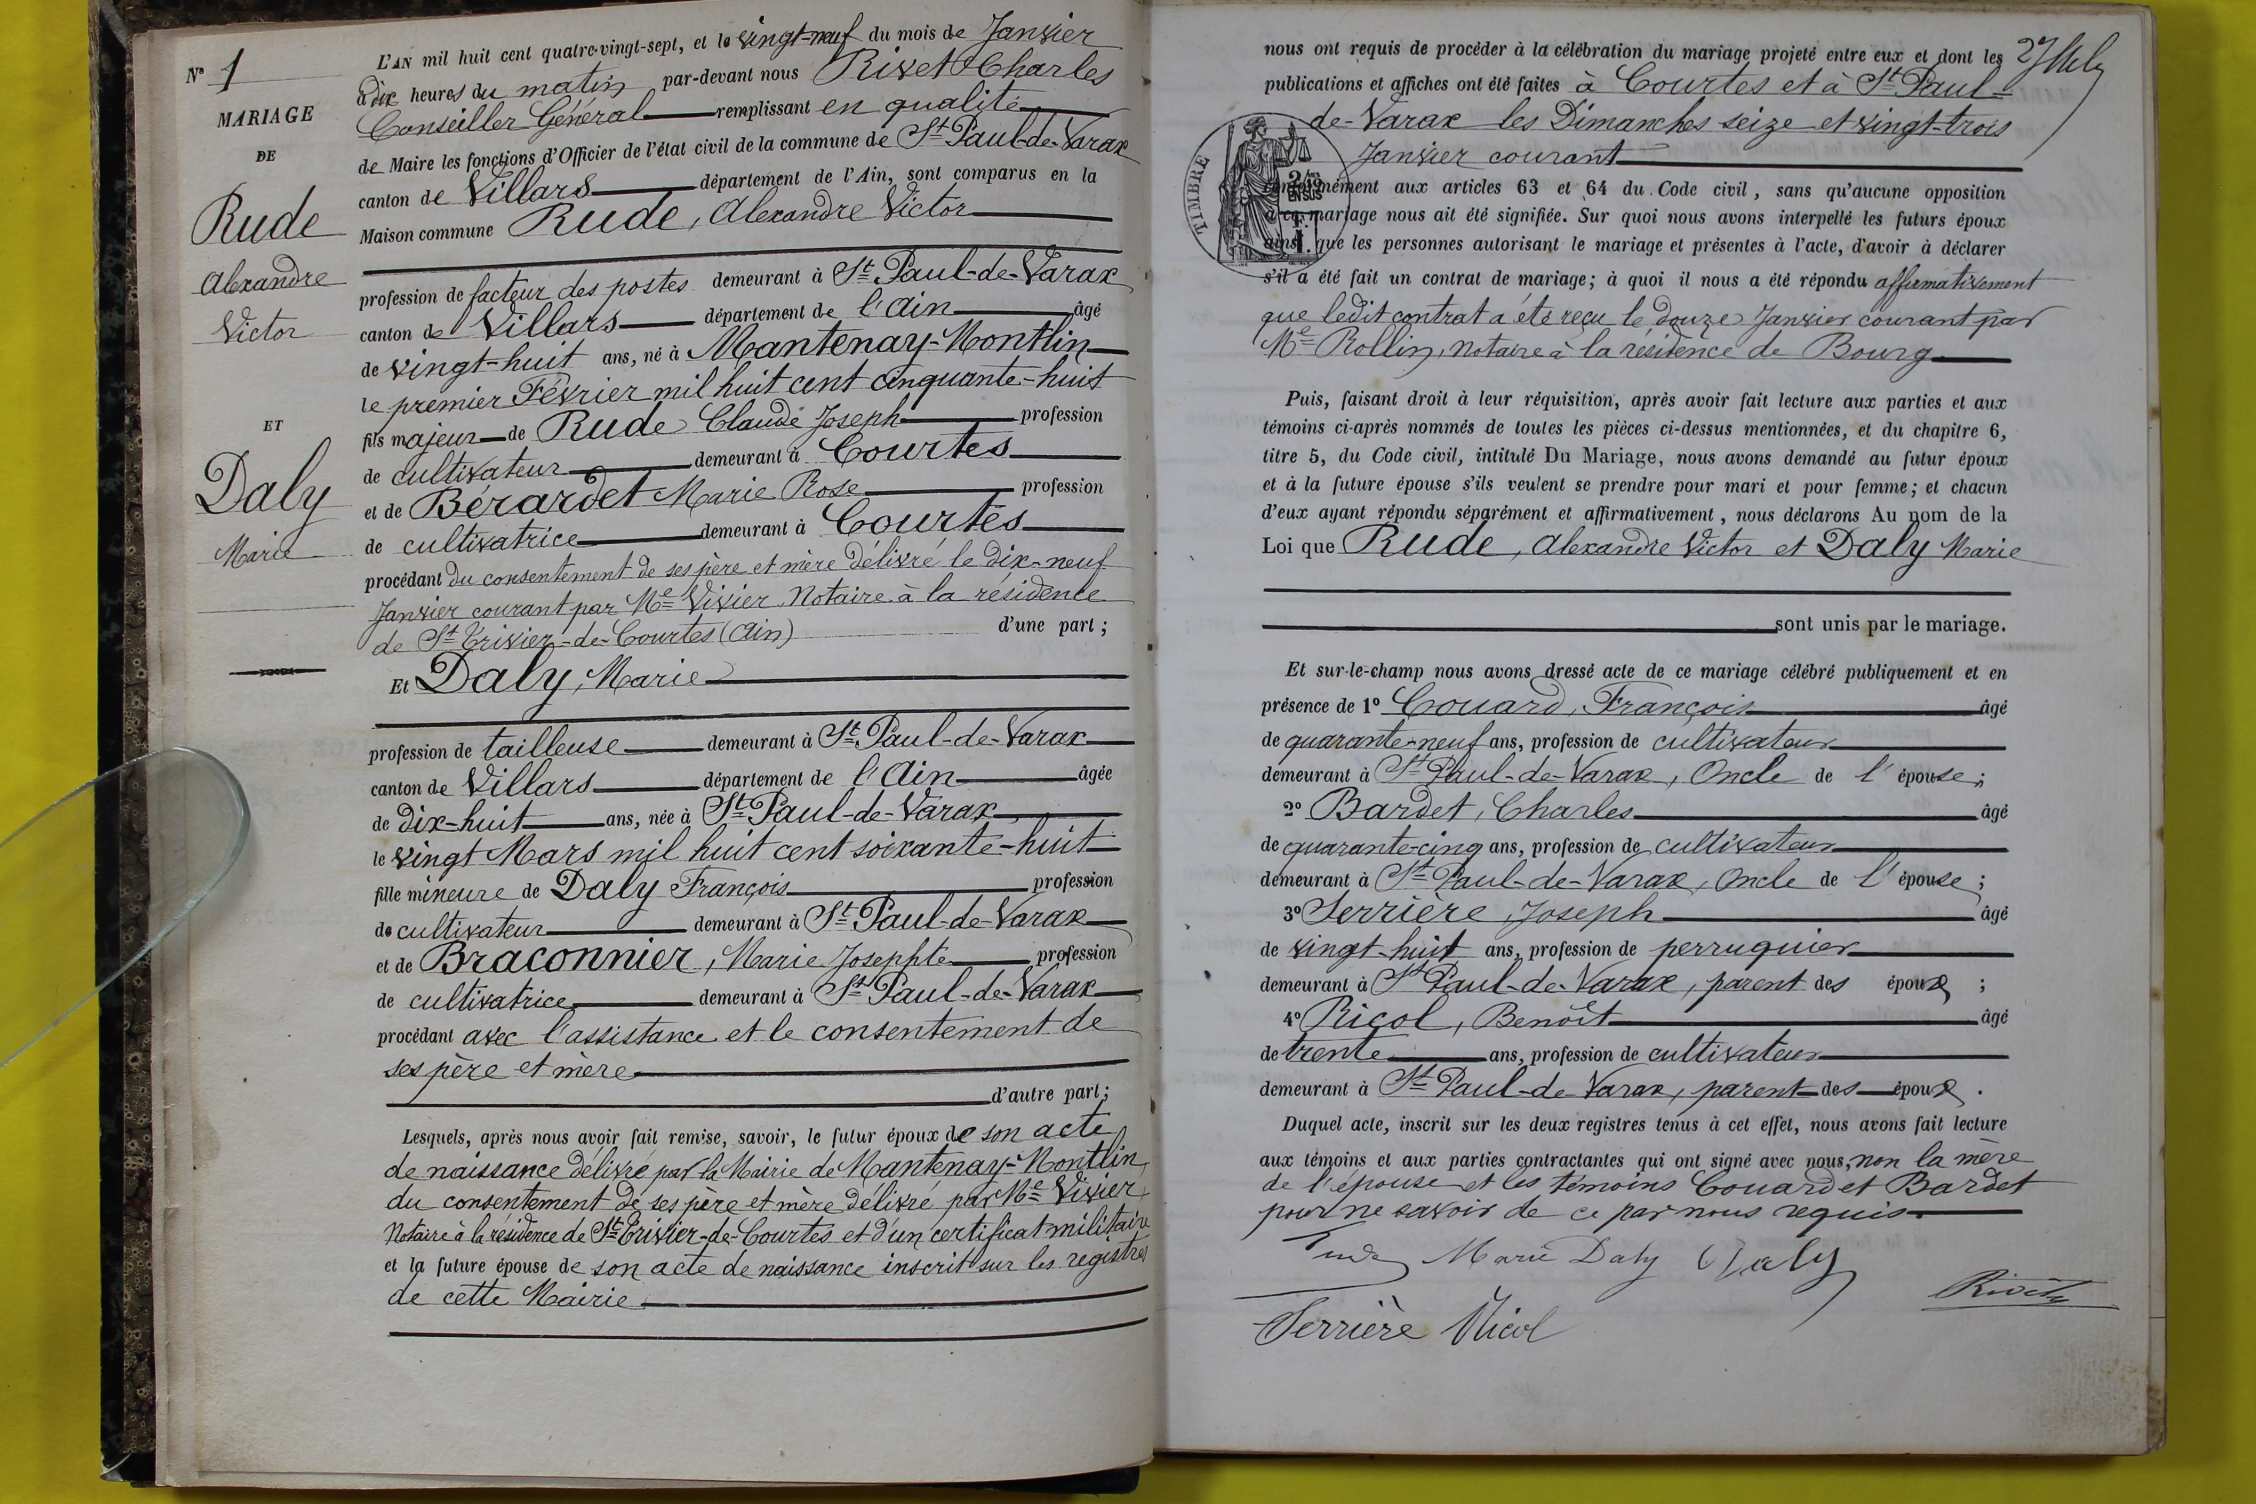 Nº 1
MARIAGE
DE
Rude
Alexandre
Victor
ET
Daly
Marie
L'AN mil huit cent quatre-vingt-sept, et le vingt-neuf du mois de Janvier
à dix heures du matin par-devant nous Rivet Charles
Conseiller Général remplissant en qualité
de Maire les fonctions d'Officier de l'état civil de la commune de St Paul-de-Varax
canton de Villars département de l'Ain, sont comparus en la
Maison commune Rude, Alexandre Victor
profession de facteur des postes demeurant à St Paul-de-Varax
canton de Villars département de l'Ain âgé
de vingt-huit ans, né à Mantenay-Montlin
le premier Février mil huit cent cinquante-huit
fils majeur de Rude Claude Joseph profession
de cultivateur demeurant à Courtes
et de Bérardet Marie Rose profession
de cultivatrice demeurant à Courtes
procédant du consentement de ses père et mère délivré le dix-neuf
Janvier courant par Me Vivier Notaire à la résidence
de St Trivier-de-Courtes (Ain) d'une part ;
Et Daly, Marie
profession de tailleuse demeurant à St Paul-de-Varax
canton de Villars département de l'Ain âgée
de dix-huit ans, née à St Paul-de-Varax
le vingt Mars mil huit cent soixante-huit
fille mineure de Daly François profession
de cultivateur demeurant à St Paul-de-Varax
et de Braconnier, Marie Josephte profession
de cultivatrice demeurant à St Paul-de-Varax
procédant avec l'assistance et le consentement de
ses père et mère
d'autre part ;
Lesquels, après nous avoir fait remise, savoir, le futur époux de son acte
de naissance délivré par la Mairie de Mantenay-Montlin,
du consentement de ses père et mère délivré par Me Vivier,
Notaire à la résidence de St Trivier-de-Courtes et d'un certificat militaire
et la future épouse de son acte de naissance inscrit sur les registres
de cette Mairie
nous ont requis de procéder à la célébration du mariage projeté entre eux et dont les
publications et affiches ont été faites à Courtes et à St Paul-
de-Varax les Dimanches seize et vingt-trois
Janvier courant
TIMBRE
EN SUS
conformément aux articles 63 et 64 du Code civil, sans qu'aucune opposition
à ce mariage nous ait été signifiée. Sur quoi nous avons interpellé les futurs époux
ainsi que les personnes autorisant le mariage et présentes à l'acte, d'avoir à déclarer
s'il a été fait un contrat de mariage ; à quoi il nous a été répondu affirmativement
que ledit contrat a été reçu le douze Janvier courant par
Me Rollin, Notaire à la résidence de Bourg
Puis, faisant droit à leur réquisition, après avoir fait lecture aux parties et aux
témoins ci-après nommés de toutes les pièces ci-dessus mentionnées, et du chapitre 6,
titre 5, du Code civil, intitulé Du Mariage, nous avons demandé au futur époux
et à la future épouse s'ils veulent se prendre pour mari et pour femme ; et chacun
d'eux ayant répondu séparément et affirmativement, nous déclarons Au nom de la
Loi que Rude, Alexandre Victor et Daly Marie
sont unis par le mariage.
Et sur-le-champ nous avons dressé acte de ce mariage célébré publiquement et en
présence de 1º Couard, François âgé
de quarante-neuf ans, profession de cultivateur
demeurant à St Paul-de-Varax, Oncle de l'épouse ;
2º Bardet, Charles âgé
de quarante-cinq ans, profession de cultivateur
demeurant à St Paul-de-Varax, Oncle de l'épouse ;
3º Serrière, Joseph âgé
de vingt-huit ans, profession de perruquier
demeurant à St Paul-de-Varax, parent des époux ;
4º Ricol, Benoît âgé
de trente ans, profession de cultivateur
demeurant à St Paul-de-Varax, parent des époux.
Duquel acte, inscrit sur les deux registres tenus à cet effet, nous avons fait lecture
aux témoins et aux parties contractantes qui ont signé avec nous, non la mère
de l'épouse et les témoins Couard et Bardet
pour ne savoir de ce par nous requis.
Rude Marie Daly Daly
Rivet
Serrière Ricol